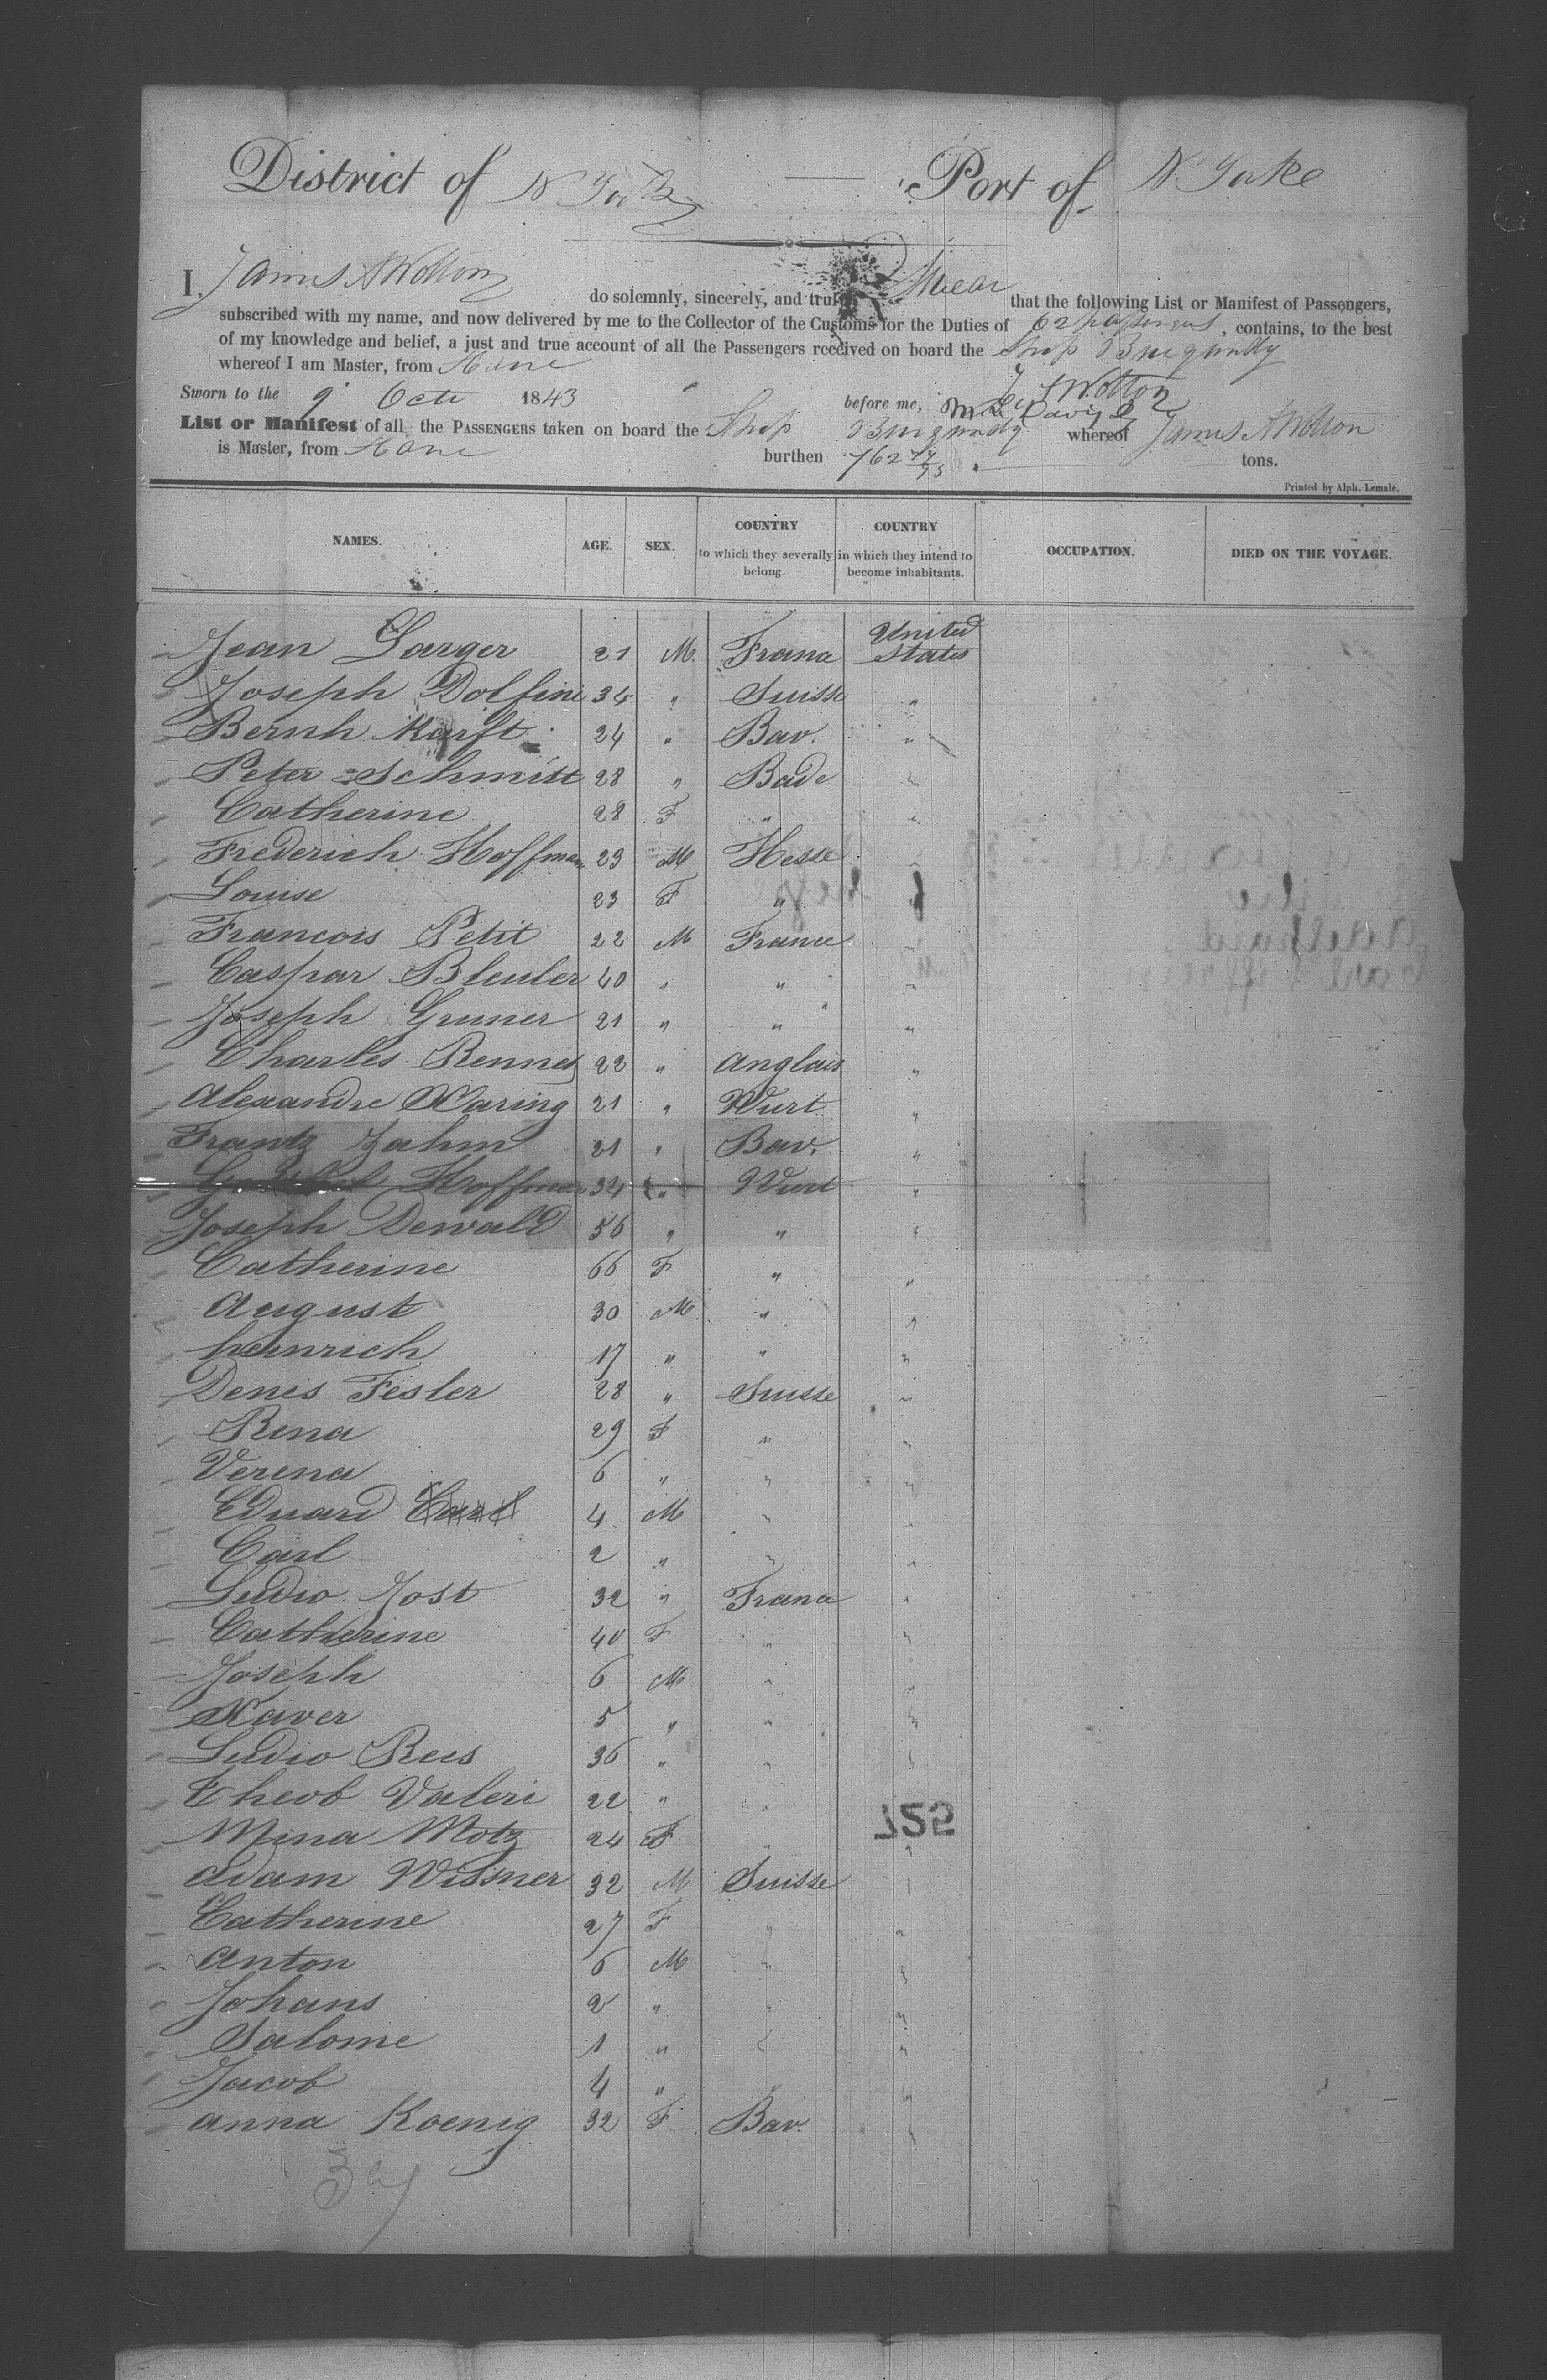 District of N York Port of N York
I, James A Wotton do solemnly, sincerely, and truly swear that the following List or Manifest of Passengers,
subscribed with my name, and now delivered by me to the Collector of the Customs for the Duties of 62 passengers, contains, to the best
of my knowledge and belief, a just and true account of all the Passengers received on board the Ship Burgundy
whereof I am Master, from Havre
J A Wotton
Sworn to the 9 Octr 1843 before me,
List or Manifest of all the PASSENGERS taken on board the Ship Burgundy whereof James A Wotton
is Master, from Havre burthen 762 tons.
Printed by Alph. Lemale.
NAMES. AGE. SEX. COUNTRY to which they severally belong. COUNTRY in which they intend to become inhabitants. OCCUPATION. DIED ON THE VOYAGE.
Jean Larger 21 M. France United States
Joseph Dolfini 34 " Suisse "
Bernh 24 " Bav. "
Peter Schmitt 28 " Bade "
Catherine 28 F " "
Frederich Hoffman 23 M Hesse "
Louise 23 F " "
Francois Petit 22 M France "
Caspar Bleuler 40 " " "
Joseph Gruner 21 " " "
Charles 22 " Anglais "
Alexandre 21 " Wurt "
Frantz Zahm 21 " Bav. "
Hoffman 34 " Wurt "
Joseph Dewald 56 " " "
Catherine 66 F " "
August 30 M " "
heinrich 17 " " "
Denes Fesler 28 " Suisse "
Rena 29 F " "
Verena 6 " " "
Eduard Carl 4 M " "
Carl 2 " " "
Ludio Jost 32 " France "
Catherine 40 F " "
Joseph 6 M " "
Xaver 5 " " "
Ludio Reis 36 " " "
Theob Valeri 22 " " "
Mina Motz 24 F " "
Adam Wissner 32 M Suisse "
Catherine 27 F " "
Anton 6 M " "
Johans 2 " " "
Salome 1 " " "
Jacob 4 " " "
Anna Koenig 32 F Bav. "